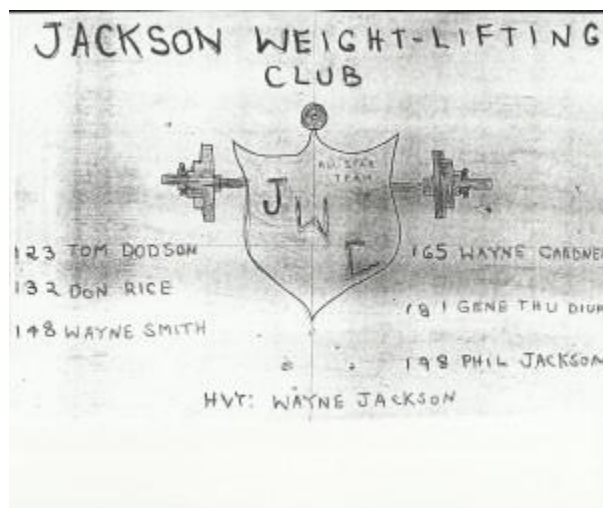 JACKSON WEIGHT-LIFTING
CLUB
ALL STAR
TEAM
J
W
C
123 TOM DODSON
132 DON RICE
148 WAYNE SMITH
165 WAYNE GARDNE
181 GENE THU
198 PHIL JACKSON
HVT: WAYNE JACKSON